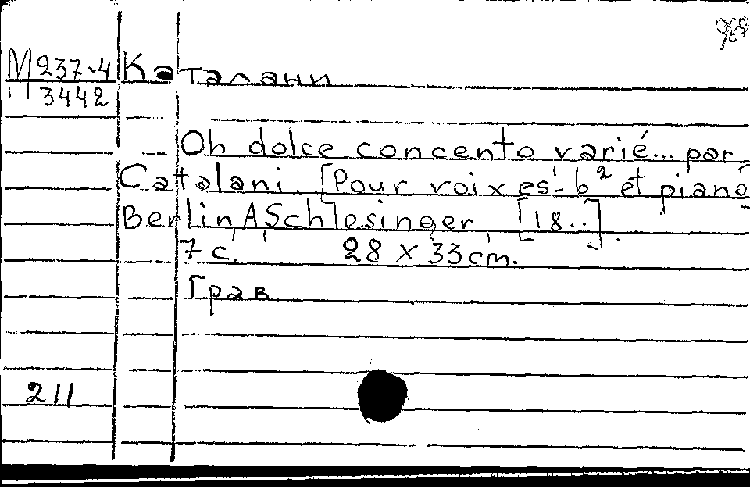 М237-4 Каталани
3442
Oh dolce concento varié... par
Catalani. [Pour voix es¹-b² et piano
Berlin, A Schlesinger, [18..].
7 с. 28 x 33 cm.
Грав
211